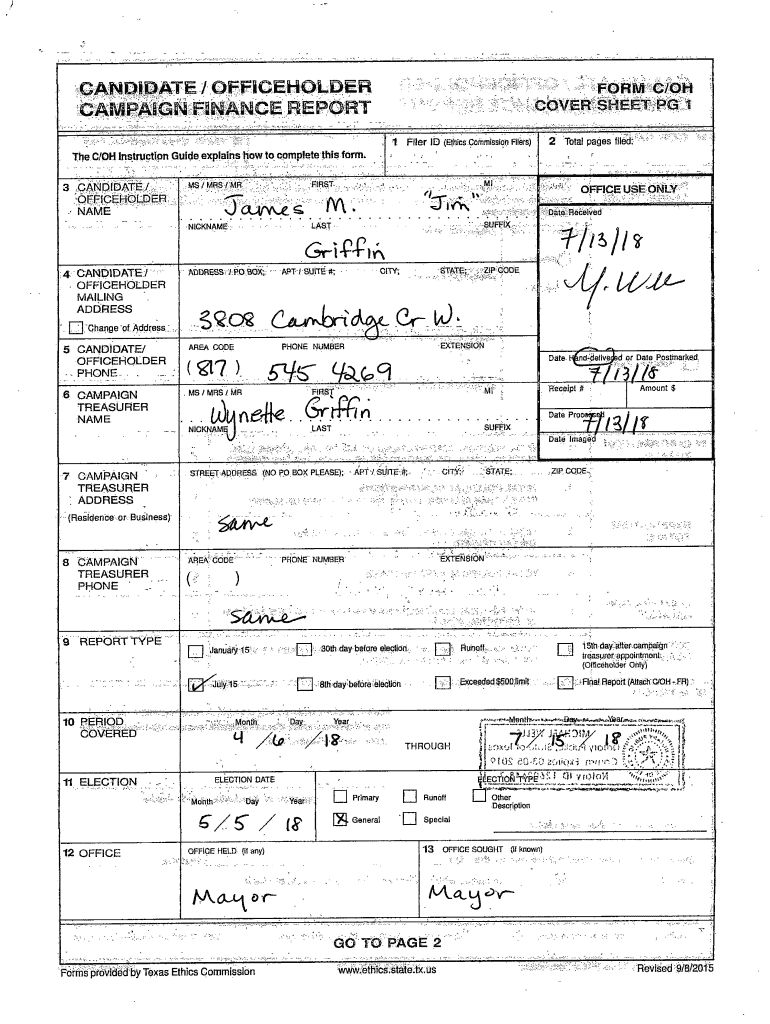 CANDIDATE / OFFICEHOLDER
CAMPAIGN FINANCE REPORT
FORM C/OH
COVER SHEET PG 1
The C/OH Instruction Guide explains how to complete this form.
1 Filer ID (Ethics Commission Filers)
2 Total pages filed:
3 CANDIDATE / OFFICEHOLDER NAME
MS / MRS / MR FIRST MI
James M. "Jim"
NICKNAME LAST SUFFIX
Griffin
OFFICE USE ONLY
Date Received
7/13/18
4 CANDIDATE / OFFICEHOLDER MAILING ADDRESS
Change of Address
ADDRESS / PO BOX; APT / SUITE #; CITY; STATE; ZIP CODE
3808 Cambridge Cr W.
5 CANDIDATE/ OFFICEHOLDER PHONE
AREA CODE PHONE NUMBER EXTENSION
(817) 545 4269
Date Hand-delivered or Date Postmarked
7/13/18
Receipt # Amount $
Date Processed
7/13/18
Date Imaged
6 CAMPAIGN TREASURER NAME
MS / MRS / MR FIRST MI
Wynette Griffin
NICKNAME LAST SUFFIX
7 CAMPAIGN TREASURER ADDRESS
(Residence or Business)
STREET ADDRESS (NO PO BOX PLEASE); APT / SUITE #; CITY; STATE; ZIP CODE
same
8 CAMPAIGN TREASURER PHONE
AREA CODE PHONE NUMBER EXTENSION
( )
same
9 REPORT TYPE
January 15 30th day before election Runoff 15th day after campaign treasurer appointment (Officeholder Only)
July 15 8th day before election Exceeded $500 limit Final Report (Attach C/OH - FR)
10 PERIOD COVERED
Month Day Year
4 / 6 / 18
THROUGH
Month Day Year
7 / 15 / 18
11 ELECTION
ELECTION DATE
Month Day Year
5 / 5 / 18
ELECTION TYPE
Primary Runoff Other Description
General Special
12 OFFICE
OFFICE HELD (if any)
Mayor
13 OFFICE SOUGHT (if known)
Mayor
GO TO PAGE 2
Forms provided by Texas Ethics Commission
www.ethics.state.tx.us
Revised 9/8/2015